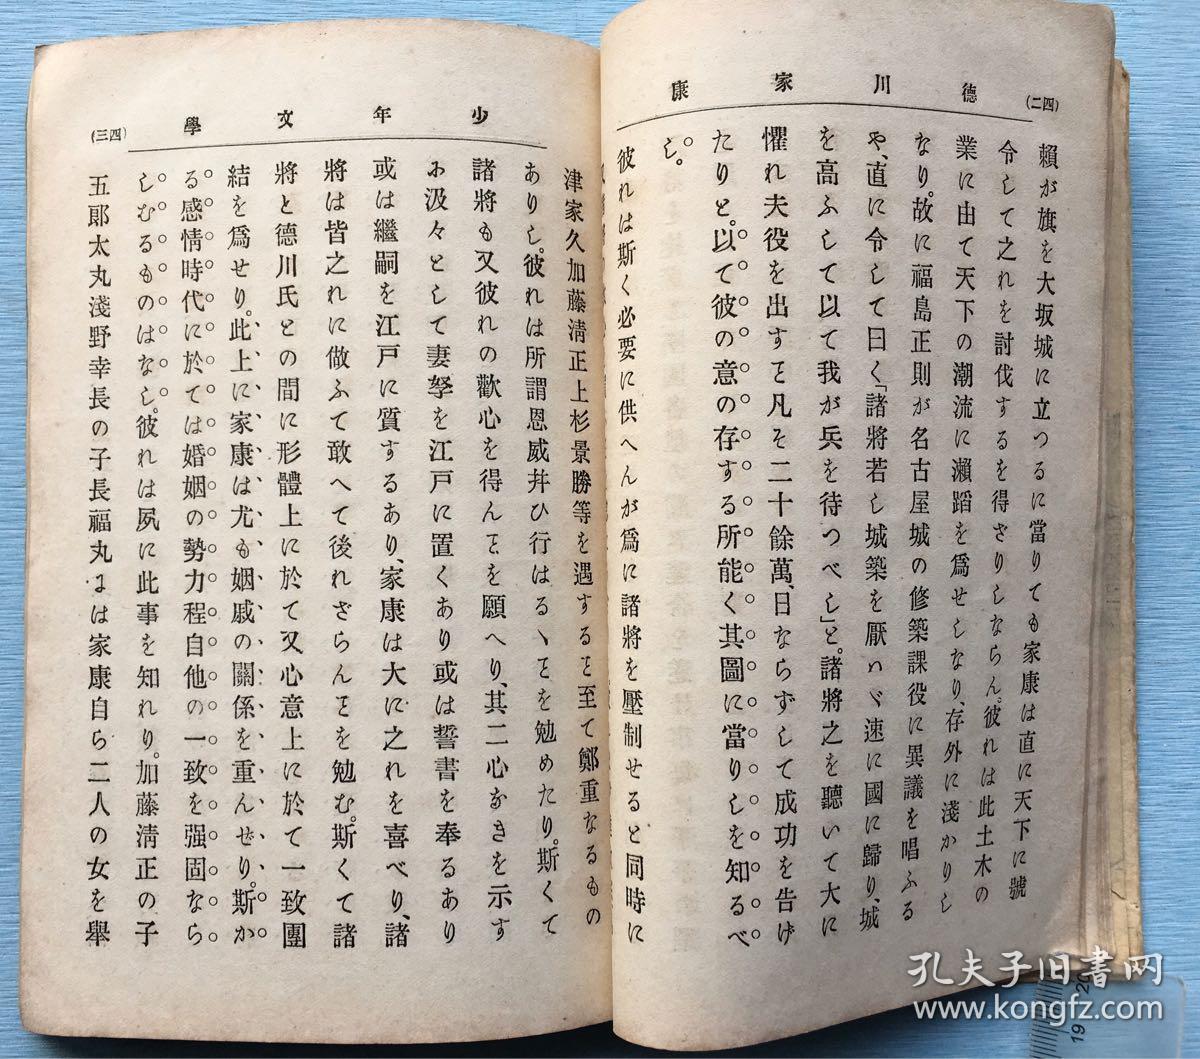 德川家康
(四二)
賴が旗を大坂城に立つるに當りても家康は直に天下に號
令して之れを討伐するを得ざりしならん。彼れは此土木の
業に由て天下の潮流に瀨蹈を爲せしなり、存外に淺かりし
なり。故に福島正則が名古屋城の修築課役に異議を唱ふる
や、直に令して曰く「諸將若し城築を厭ハヾ速に國に歸り、城
を高ふして以て我が兵を待つべし」と。諸將之を聽いて大に
懼れ夫役を出すヿ凡そ二十餘萬、日ならずして成功を告げ
たりと。以て彼の意の存する所能く其圖に當りしを知るべ
し。
彼れは斯く必要に供へんが爲に諸將を壓制せると同時に
少年文學
(四三)
津家久加藤淸正上杉景勝等を遇するヿ至て鄭重なるもの
ありし。彼れは所謂恩威幷ひ行はるヽヿを勉めたり。斯くて
諸將も又彼れの歡心を得んヿを願へり、其二心なきを示す
に汲々として妻孥を江戸に置くあり或は誓書を奉るあり
或は繼嗣を江戸に質するあり、家康は大に之れを喜べり、諸
將は皆之れに做ふて敢へて後れざらんヿを勉む。斯くて諸
將と德川氏との間に形體上に於て又心意上に於て一致團
結を爲せり。此上に家康は尤も姻戚の關係を重んぜり。斯か
る感情時代に於ては婚姻の勢力程自他の一致を强固なら
しむるものはなし。彼れは夙に此事を知れり。加藤淸正の子
五郞太丸淺野幸長の子長福丸には家康自ら二人の女を擧
孔夫子旧書网
www.kongfz.com
19 20